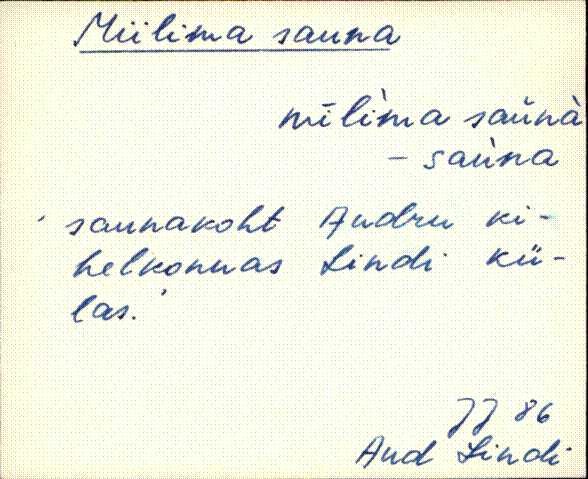 Miilima sauna
mīl̀ima saùnà
– saùna
' saunakoht Audru ki-
helkonnas Lindi kü-
las.'
JJ 86
Aud Lindi